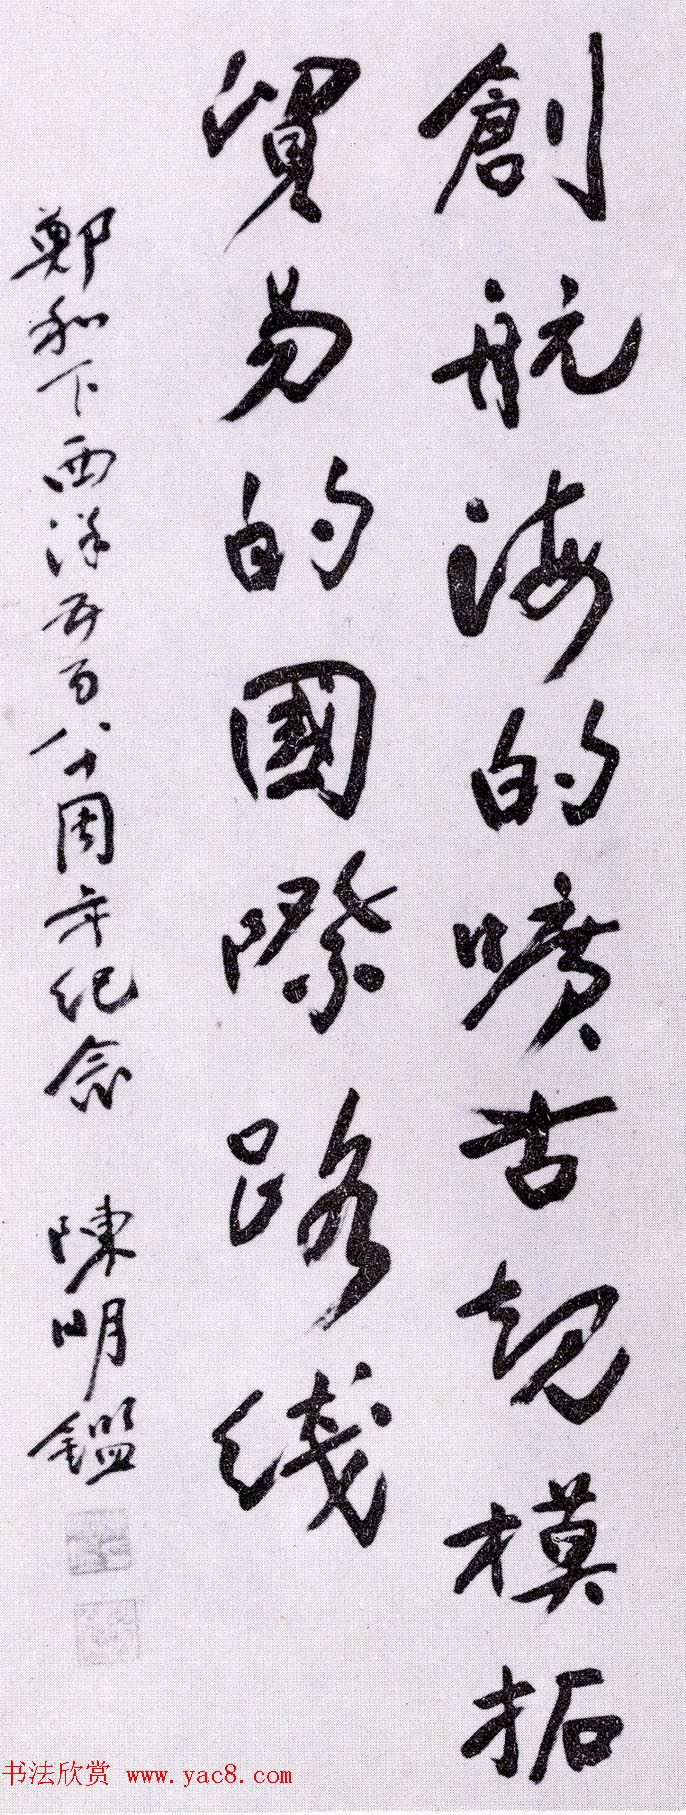 創航海的嚝古規模拓
貿易的國際路线
鄭和下西洋五百八十周年纪念 陳明鑑
书法欣赏 www.yac8.com